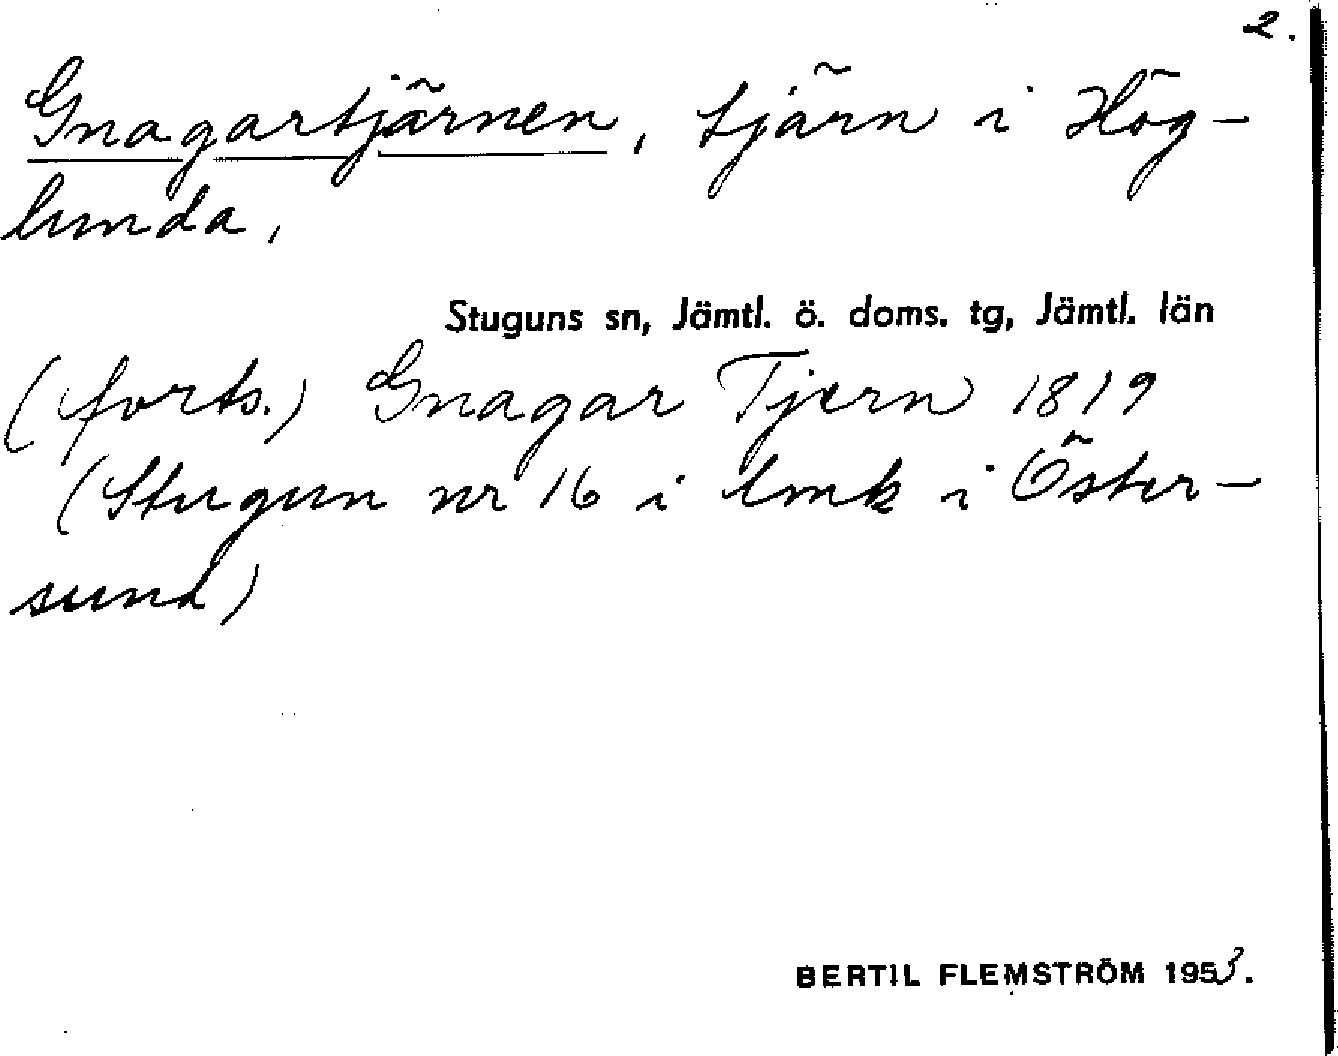 2.
Gnagartjärnen, tjärn i Hög-
lunda,
Stuguns sn, Jämtl. ö. doms. tg, Jämtl. län
(forts.) Gnagar Tjern 1819
(Stugun nr 16 i lmk i Öster-
sund)
BERTIL FLEMSTRÖM 1953.